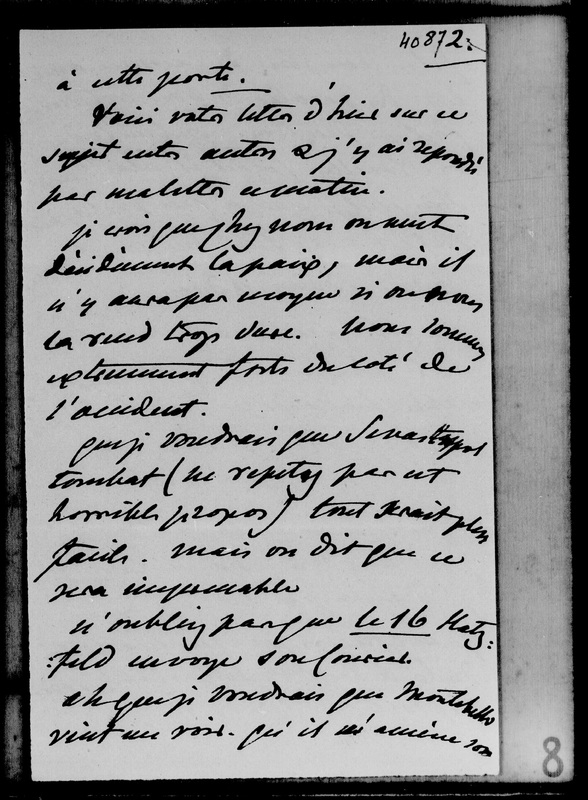 40872.
à cette porte.
Voici votre lettre d'hier sur ce
sujet entre autres & j'y ai repondu
par ma lettre ce matin.
je crois que chez nous on veut
décidément la paix, mais il
n'y aura pas moyen si on nous
la rend trop dure. Nous sommes
extremement forts du coté de
l'occident.
que je voudrais que Sevastopol
tombat (ne repetez pas cet
horrible propos) tout serait plus
facile. mais on dit que ce
sera imprenable
n'oubliez pas que le 16 Hatz:
:feld envoye son Courier.
ah que je voudrais que Montebello
vint me voir. qu'il m'amène son
8